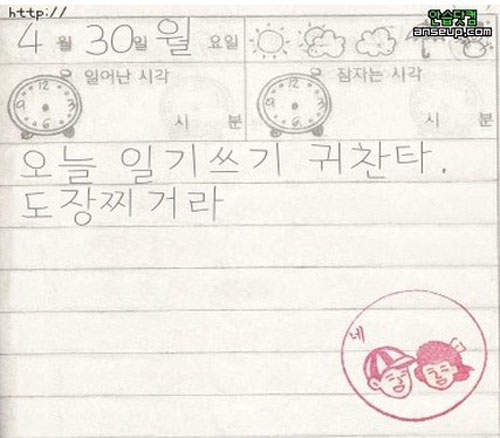 http://
안습닷컴
anseup.com
4 월 30 일 월 요일
일어난 시각 잠자는 시각
시 분 시 분
오늘 일기쓰기 귀찬타.
도장찌거라
네